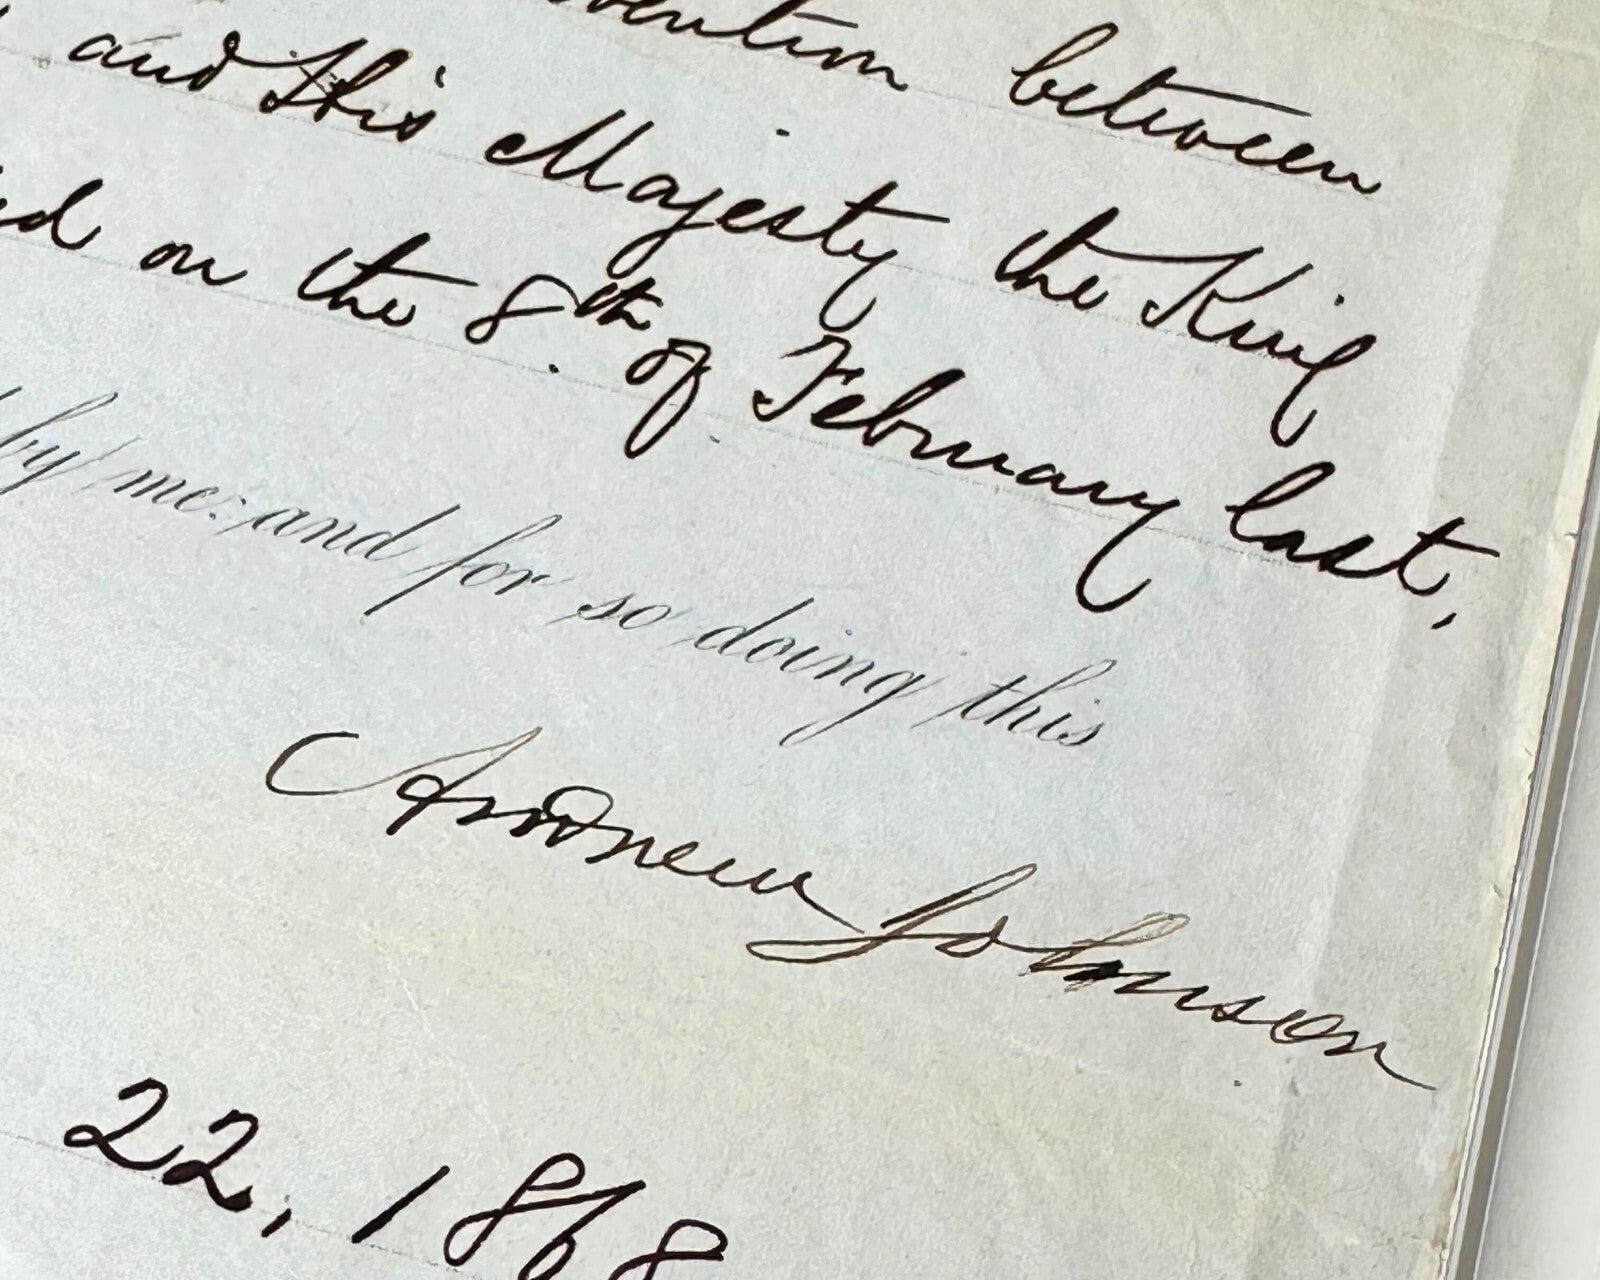 vention between
and His Majesty the King
d on the 8th of February last,
by me: and for so doing this
Andrew Johnson
22, 1868